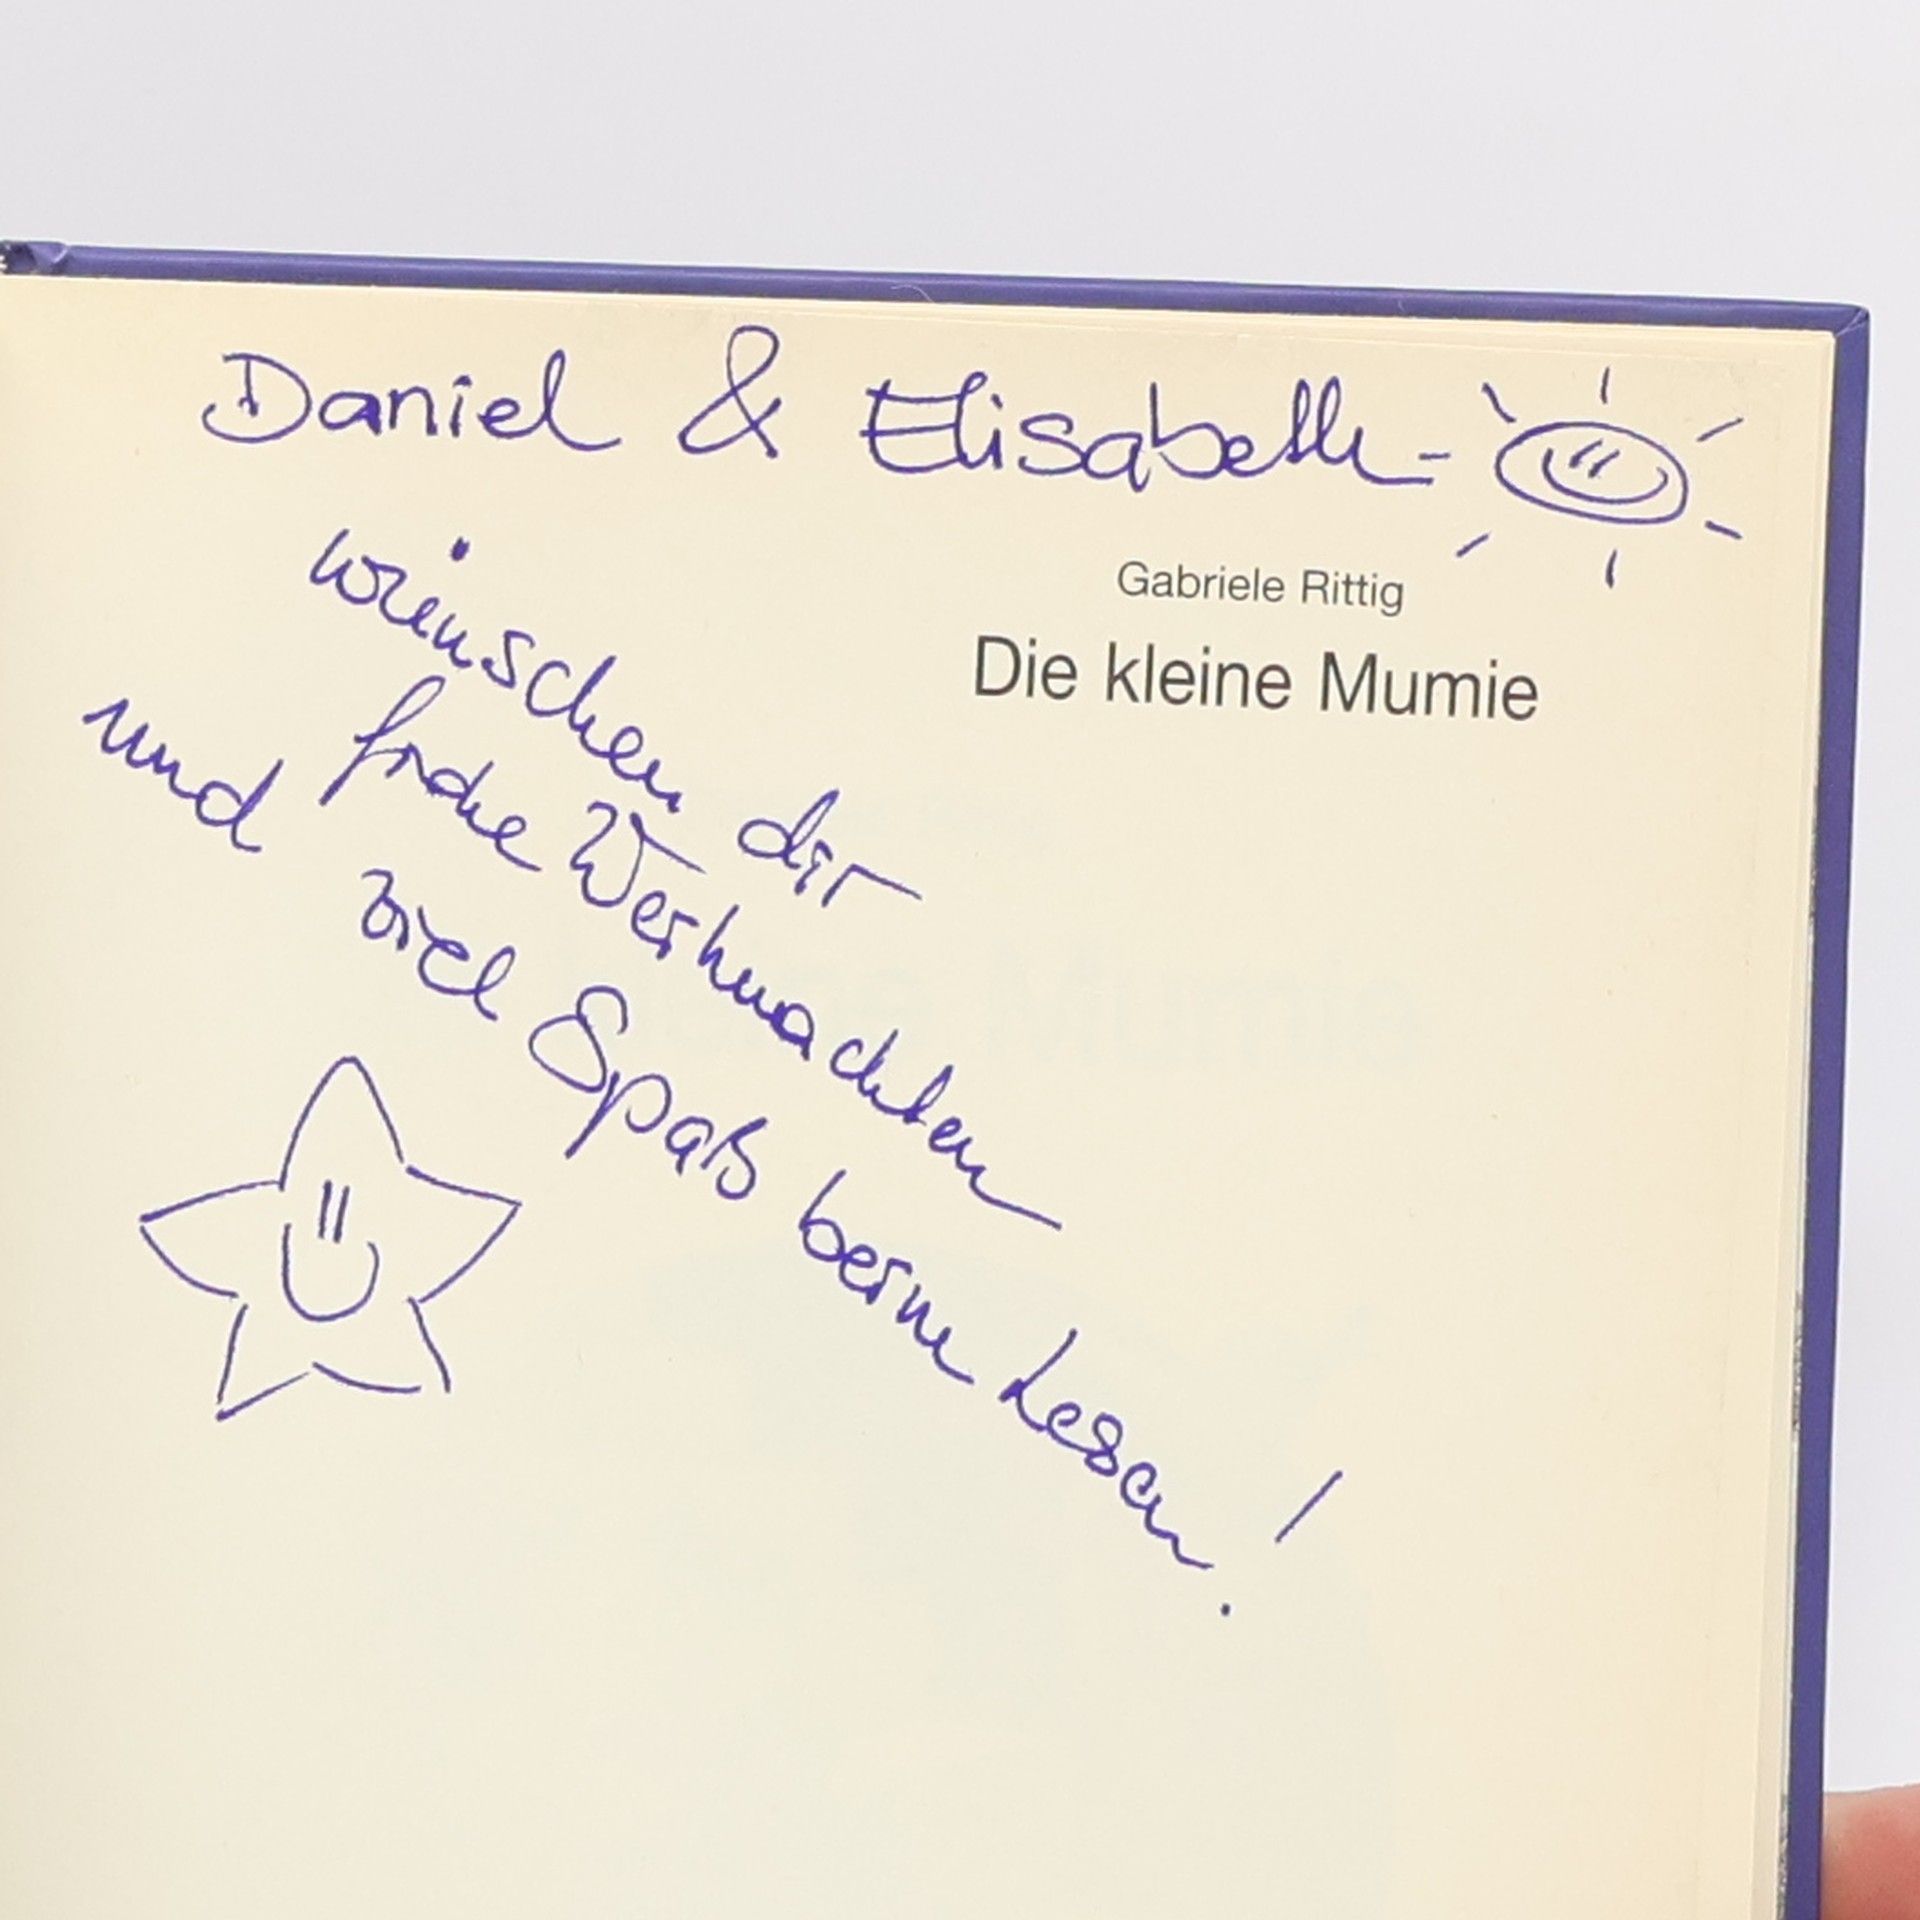 Daniel & Elisabeth
Gabriele Rittig
Die kleine Mumie
wünschen dir
frohe Weihnachten
und viel Spaß beim Lesen!